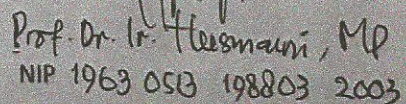 Prof. Dr. Ir. Heesmauni, MP
NIP 1963 0513 198803 2003